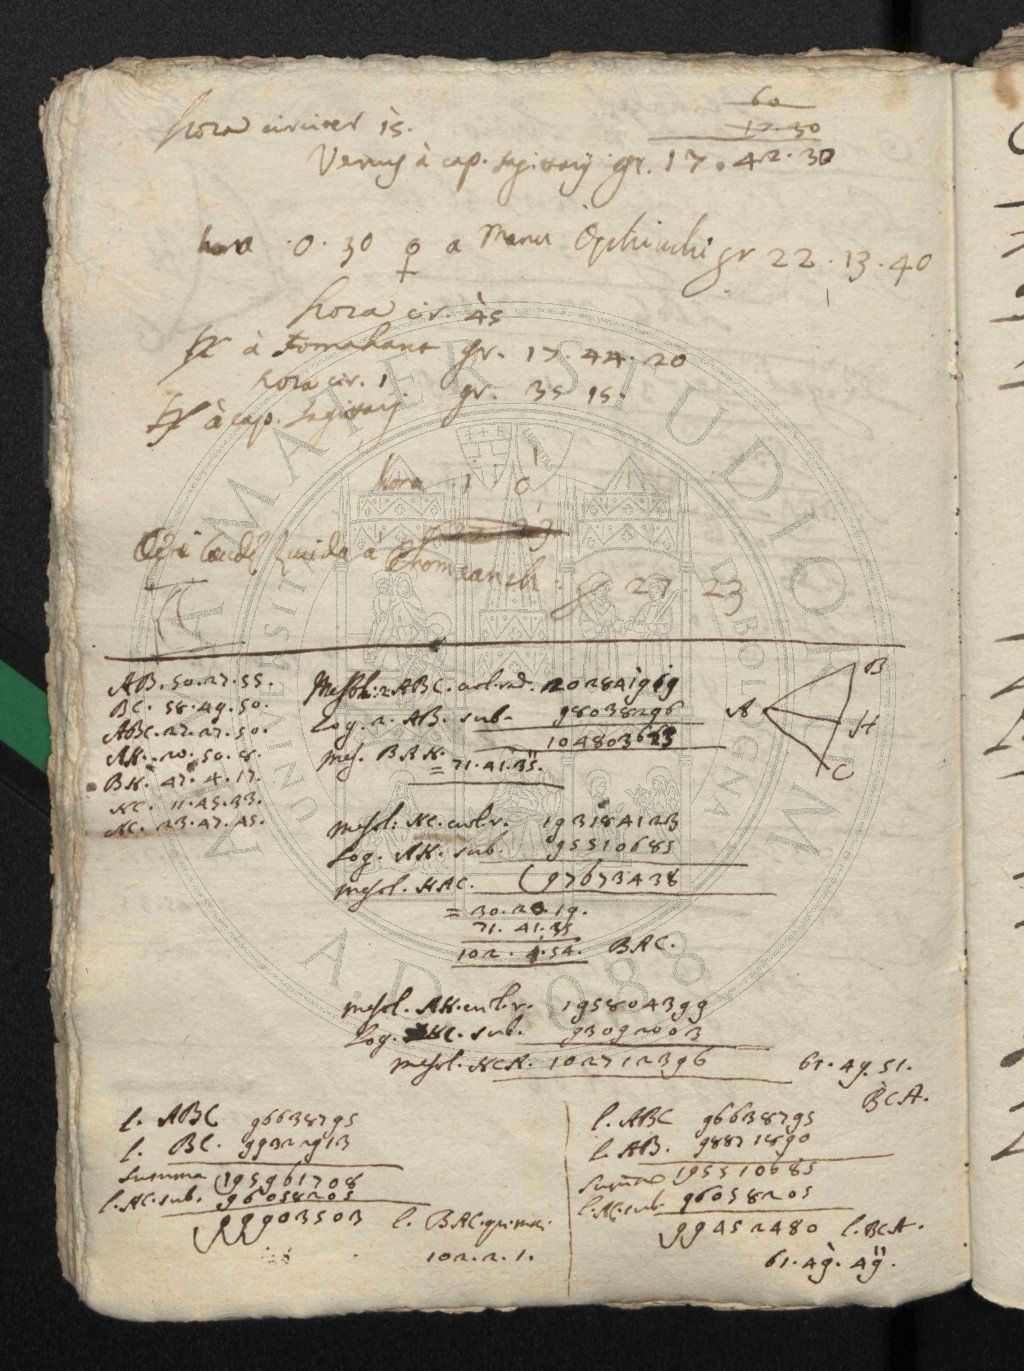 60
17.30
hora circiter 15.
Venus à cap. Sagittarij gr. 17. 42. 30
hora 0. 30 ♀ a Manu Ophiuchi gr 22. 13. 40
hora cir. 45
à Fomahant gr. 17. 44. 20
hora cir. 1
à cap. Sagittarij gr. 35 15.
hora 1 0
lucida à Phomaanth: g 27. 23
AB. 50. 27. 55.
BC. 58. 49. 50.
ABC. 27. 27. 50.
AH. 20. 50. 8.
BH. 47. 4. 17.
HC. 11. 45. 33.
AC. 23. 47. 45.
Mesol: 2. ABC.
Log. 2. AB. sub. 98038296
104803623
Mes. BAH.
= 71. 41. 35.
A B H C
mesol. HC. 193184123
Log. AH. sub. 95510685
mesol. HAC. (97673438
= 30. 20. 19.
71. 41. 35
102. 1. 54. BAC.
mesol. AH. 195804399
Log. HC. sub. 93092003
mesol. HCA. 102712396 61. 49. 51.
BCA.
l. ABC 96638795
l. BC. 99322913
Summa 195961708
l. AC. sub. 96058205
99903503 l. BAC.
102. 2. 1.
l. ABC 96638795
l. AB. 98871890
Summa 195510685
l. AC. sub 96058205
99452480 l. BCA.
61. 49. 49.
ALMA MATER STUDIORUM
UNIVERSITÀ DI BOLOGNA
A.D. 1088